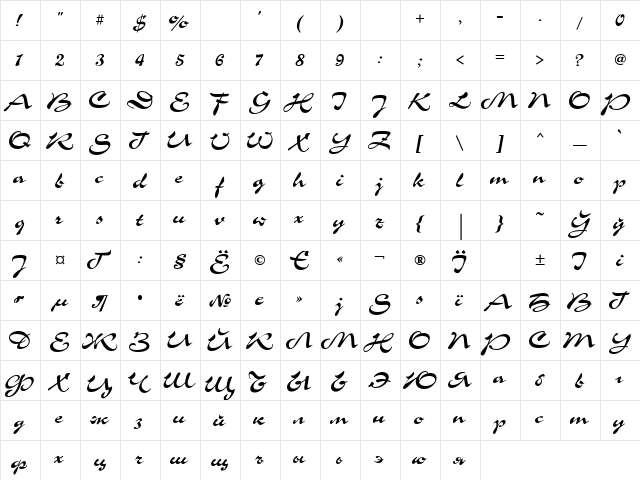 ! " # $ % ' ( ) + , - . / 0
1 2 3 4 5 6 7 8 9 : ; < = > ? @
A B C D E F G H I J K L M N O P
Q R S T U V W X Y Z [ \ ] ^ _ `
a b c d e f g h i j k l m n o p
q r s t u v w x y z { | } ~ Ў ў
Ј ¤ Ґ : § Ё © Є « ¬ ® Ї ± І і
ґ µ ¶ • ё № є » ј Ѕ ѕ ї А Б В Г
Д Е Ж З И Й К Л М Н О П Р С Т У
Ф Х Ц Ч Ш Щ Ъ Ы Ь Э Ю Я а б в г
д е ж з и й к л м н о п р с т у
ф х ц ч ш щ ъ ы ь э ю я